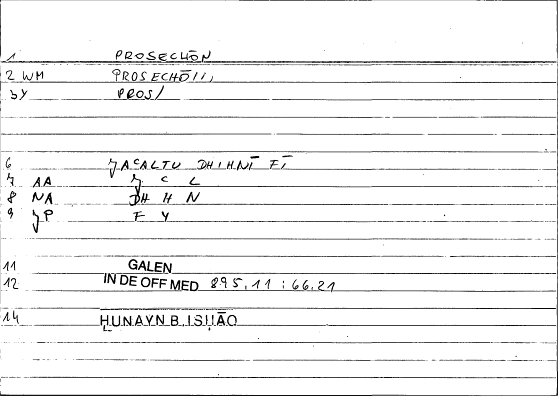 1 PROSECHŌN
2 WM PROSECHŌ///,
3Y PROS/
6 ǴACALTU DHIHNĪ FĪ
7 AA Ǵ C L
8 NA DH H N
9 ǴP F Y
11 GALEN
12 IN DE OFF MED 895,11 : 66.21
14 ḤUNAYN B. ISḤĀQ